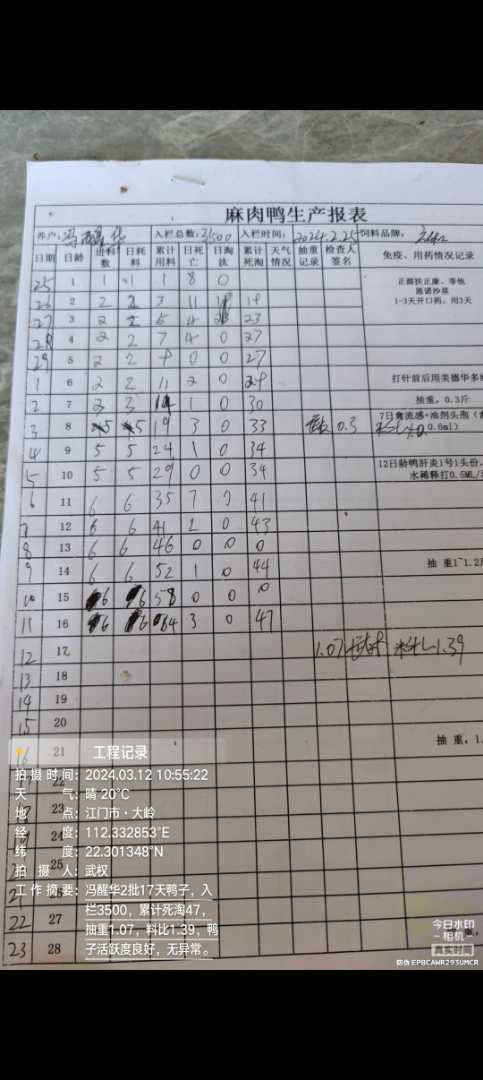 麻肉鸭生产报表
养户: 冯醒华 入栏总数: 3500 入栏时间: 2024.2.25 饲料品牌:
日期 日龄 进料数 日耗料 累计用料 日死亡 日淘汰 累计死淘 天气情况 抽重记录 检查人签名 免疫、用药情况记录
25 1 1 1 1 8 0 正酸扶正康、零他
26 2 2 2 3 11 19
1-3天开口药，用3天
27 3 2 2 5 4 23
28 4 2 2 7 4 0 27
29 5 2 2 9 0 0 27
1 6 2 2 11 2 0 29 打针前后用美德华多
2 7 3 3 14 1 0 30 抽重，0.3斤
3 8 5 5 19 3 0 33 0.3 7日禽流感+油剂头孢
0.6ml）
4 9 5 5 24 1 0 34
5 10 5 5 29 0 0 34 12日龄鸭肝炎1号1头份,
水稀释打0.5ML/
6 11 6 6 35 7 0 41
7 12 6 6 41 2 0 43
8 13 6 6 46 0 0 0
9 14 6 6 52 1 0 44 抽 重1~1.2
10 15 6 6 58 0 0 0
11 16 6 6 64 3 0 47
12 17 1.07 料比1.39
13 18
14 19
15 20
16 21 抽 重，1.
22
23
24
25
22 27
23 28
工程记录
拍摄时间: 2024.03.12 10:55:22
天 气: 晴 20℃
地 点: 江门市·大岭
经 度: 112.332853°E
纬 度: 22.301348°N
拍 摄 人: 武权
工作摘要: 冯醒华2批17天鸭子，入
栏3500，累计死淘47，
抽重1.07，料比1.39，鸭
子活跃度良好，无异常。
今日水印
-相机-
真实时间
防伪 EPBCAWR293UMCR